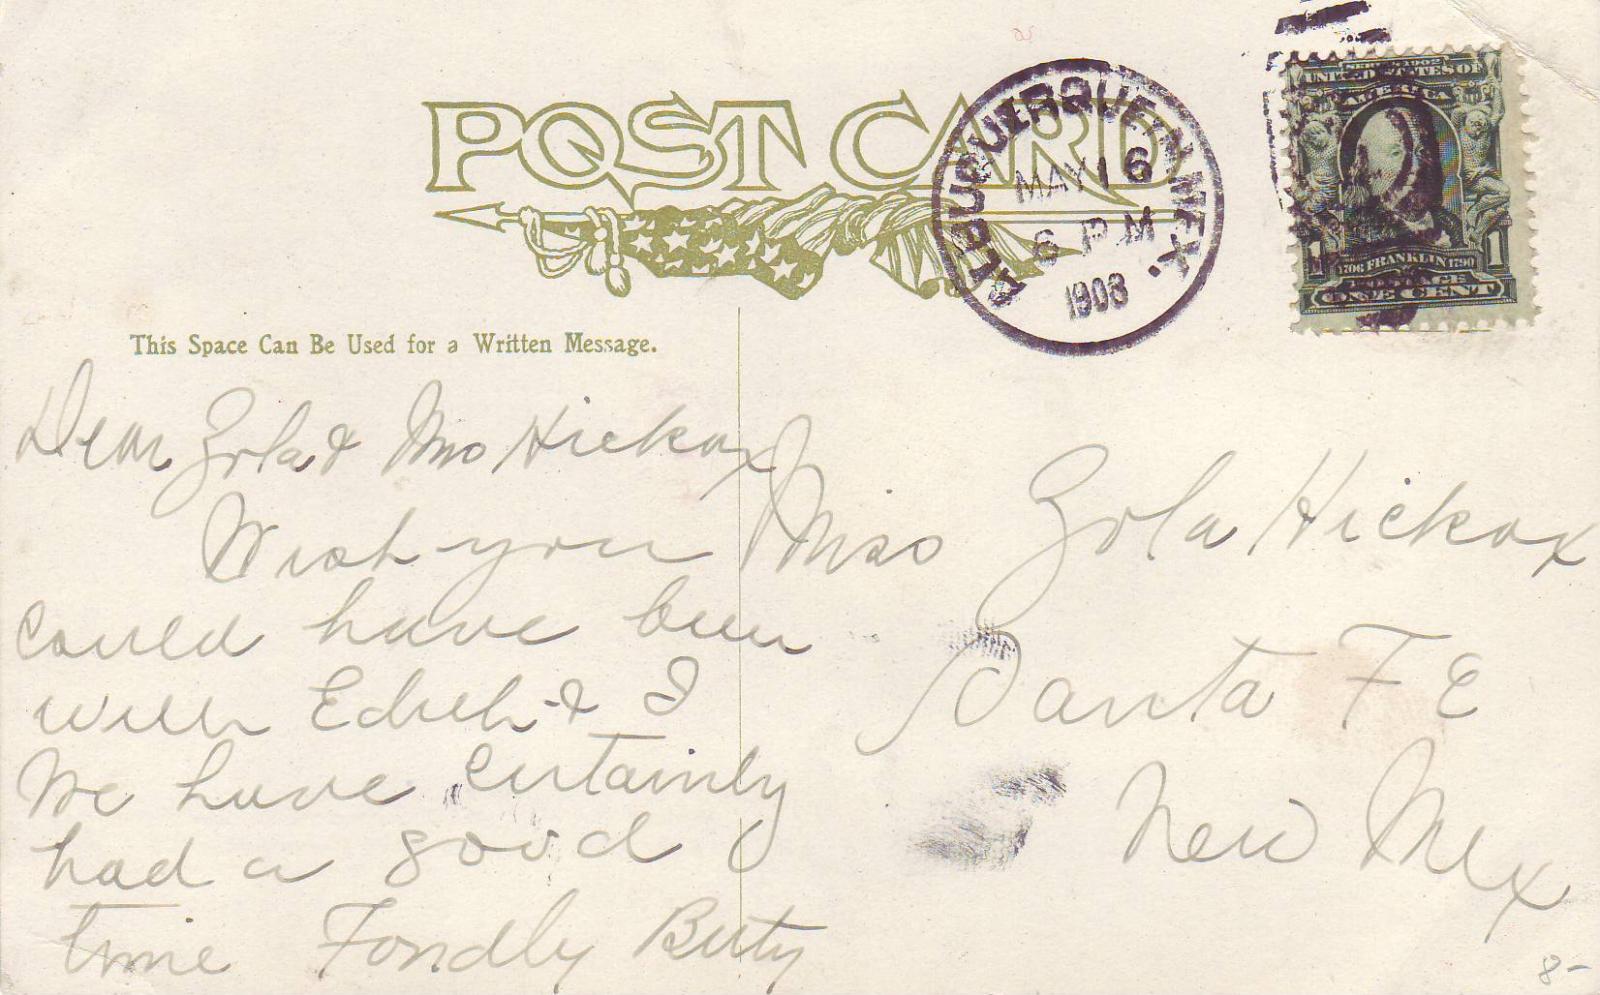 POST CARD
ALBUQUERQUE, N. MEX.
MAY 16
6 PM
1908
SERIES 1902
UNITED STATES OF
AMERICA
1 1706 FRANKLIN 1790 1
POSTAGE
ONE CENT
This Space Can Be Used for a Written Message.
Dear Zola & Mrs Hickox
Wish you
could have been
with Edith & I
We have certainly
had a good
time Fondly Berty
Miss Zola Hickox
Santa FE
New Mex
8-